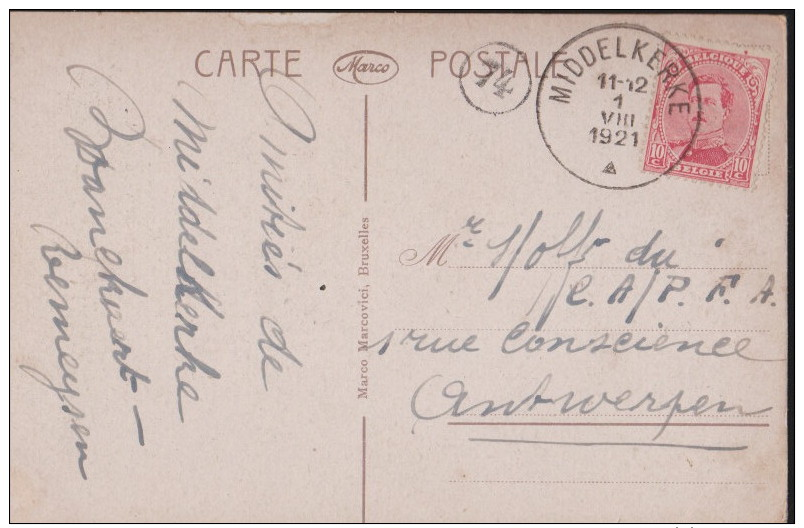 CARTE Marco POSTALE
74
MIDDELKERKE
11-12
1
VIII
1921
BELGIQUE
10 C 10 C
BELGIE
Amitiés de
Middelkerke
Marco Marcovici, Bruxelles
Mr du
C. A. P. F. A.
1 rue Conscience
Antwerpen